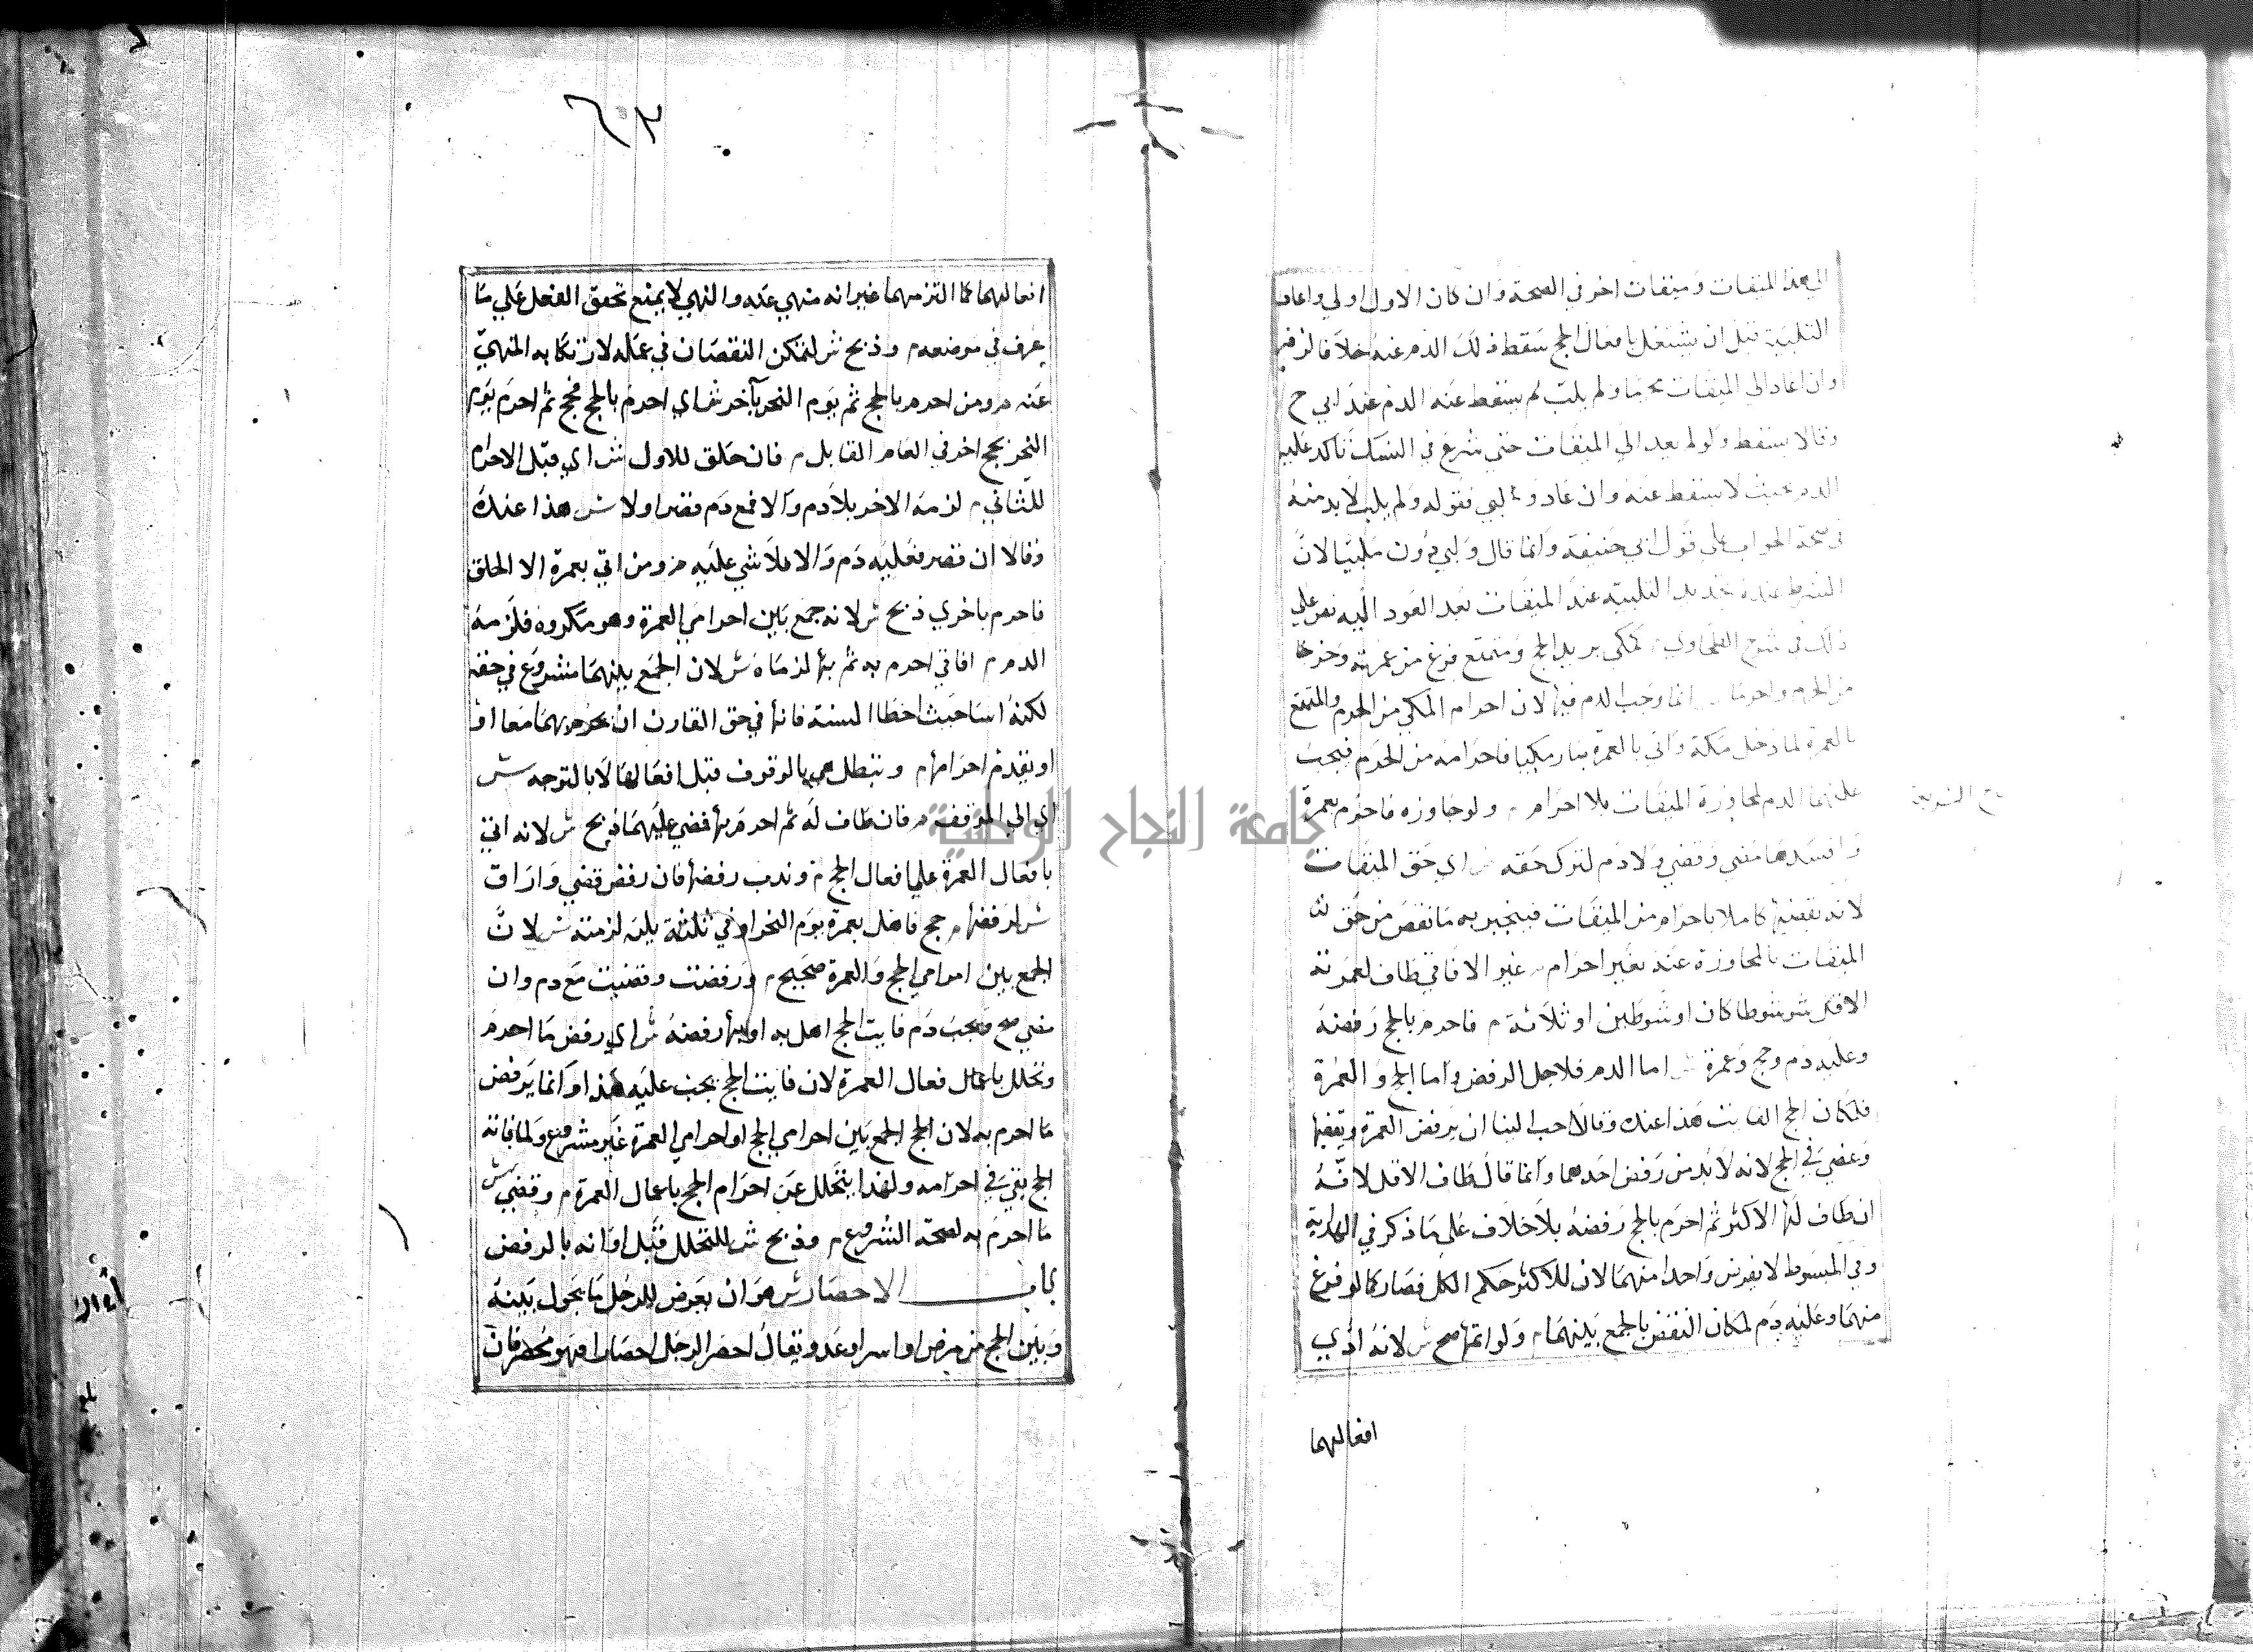 الي هذا الميقات وميقات اخر في الصحة وان كان الاول اولي واعاد
التلبية قبل ان يشتغل بافعال الحج سقط ذلك الدم عنه خلافا لزفر
وان اعاد الي الميقات محرما ولم يلب لم يسقط عنه الدم عند ابي ح
وقالا يسقط ولو لم يعد الي الميقات حتي شرع في النسك تاكد عليه
الدم بحيث لا يسقط عنه وان عاد ولبي فقوله ولم يلب لا بد منه
في صحة الجواب علي قول ابي حنيفة وانما قال ولبي دون ملبيا لان
الشرط عنده تجديد التلبية عند الميقات بعد العود اليه نص علي
ذلك في شرح الطحاوي م كمكي يريد الحج ومتمتع فرغ من عمرته وخرجا
من الحرم واحرما انما وجب الدم فيها لان احرام المكي من الحرم والمتمتع
بالعمرة لما دخل مكة واتي بالعمرة صار مكيا فاحرامه من الحرم فيجب
عليهما الدم لمجاوزة الميقات بلا احرام م ولو جاوزه فاحرم بعمرة
وافسدها مضي وقضي ولا دم لترك حقه ش اي حق الميقات
لانه يقضيها كاملا باحرام من الميقات فينجبر به ما نقص من حق
الميقات بالمجاوزة عنه بغير احرام م غير الافاقي طاف لعمرته
الاقل ش شوطا كان او شوطين او ثلاثة م فاحرم بالحج رفضه
وعليه دم وحج وعمرة ش اما الدم فلاجل الرفض واما الحج والعمرة
فلمكان الحج الفايت هذا عنده وقالا احب الينا ان يرفض العمرة ويقضيها
ويمضي في الحج لانه لا بد من رفض احدهما وانما قال طاف الاقل لانه
ان طاف لها الاكثر ثم احرم بالحج رفضه بلا خلاف علي ما ذكر في الهداية
وفي المبسوط لا يفرض واحدا منهما لان للاكثر حكم الكل فصار كما لو فرغ
منهما وعليه دم لمكان النقض بالجمع بينهما م ولو اتمها صح ش لانه ادي
افعالهما
٦٣
افعالهما كما التزمهما غير انه منهي عنه والنهي لا يمنع تحقق الفعل علي ما
عرف في موضعه م وذبح ش لتمكن النقصان في عمله لارتكابه المنهي
عنه م ومن احرم بالحج ثم يوم النحر بآخر ش اي احرم بالحج فحج ثم احرم يوم
النحر بحج اخر في العام القابل م فان حلق للاول ش اي قبل الاحرام
للثاني م لزمه الاخر بلا دم والا فمع دم قصر اولا ش هذا عنده
وقالا ان قصر فعليه دم والا فلا شي عليه م ومن اتي بعمرة الا الحلق
فاحرم باخري ذبح ش لانه جمع بين احرامي العمرة وهو مكروه فلزمه
الدم م افاقي احرم به ثم بها لزماه ش لان الجمع بينهما مشروع في حقه
لكنه اسا حيث اخطا السنة فانها في حق القارن ان يحرم بهما معا او
او يقدم احرامها م وتبطل هي بالوقوف قبل افعالها لا بالتوجه ش
اي الي الموقف م فان طاف له ثم احرم بها فمضي عليهما ذبح ش لانه اتي
بافعال العمرة علي افعال الحج م وندب رفضها فان رفض قضي واراق
ش لرفضها م حج فاهل بعمرة يوم النحر او في ثلثة يليه لزمته ش لان
الجمع بين احرامي الحج والعمرة صحيح م ورفضت وقضيت مع دم وان
مضي صح ويجب دم فايت الحج اهل به او بها رفضه ش اي رفض ما احرم
وتحلل باعمال فعال العمرة لان فايت الحج يجب عليه هذا وانما يرفض
ما احرم به لان الحج الجمع بين احرامي الحج او احرامي العمرة غير مشروع ولما فاته
الحج بقي في احرامه ولهذا يتحلل عن احرام الحج باعمال العمرة م وقضي ش
ما احرم به لصحة الشروع م وذبح ش للتحلل قبل اوانه بالرفض
باب الاحصار ش هو ان يعرض للرجل ما يحول بينه
وبين الحج من مرض او اسر او عدو ويقال احصر الرجل احصارا فهو محصر فان
جامعة النجاح الوطنية